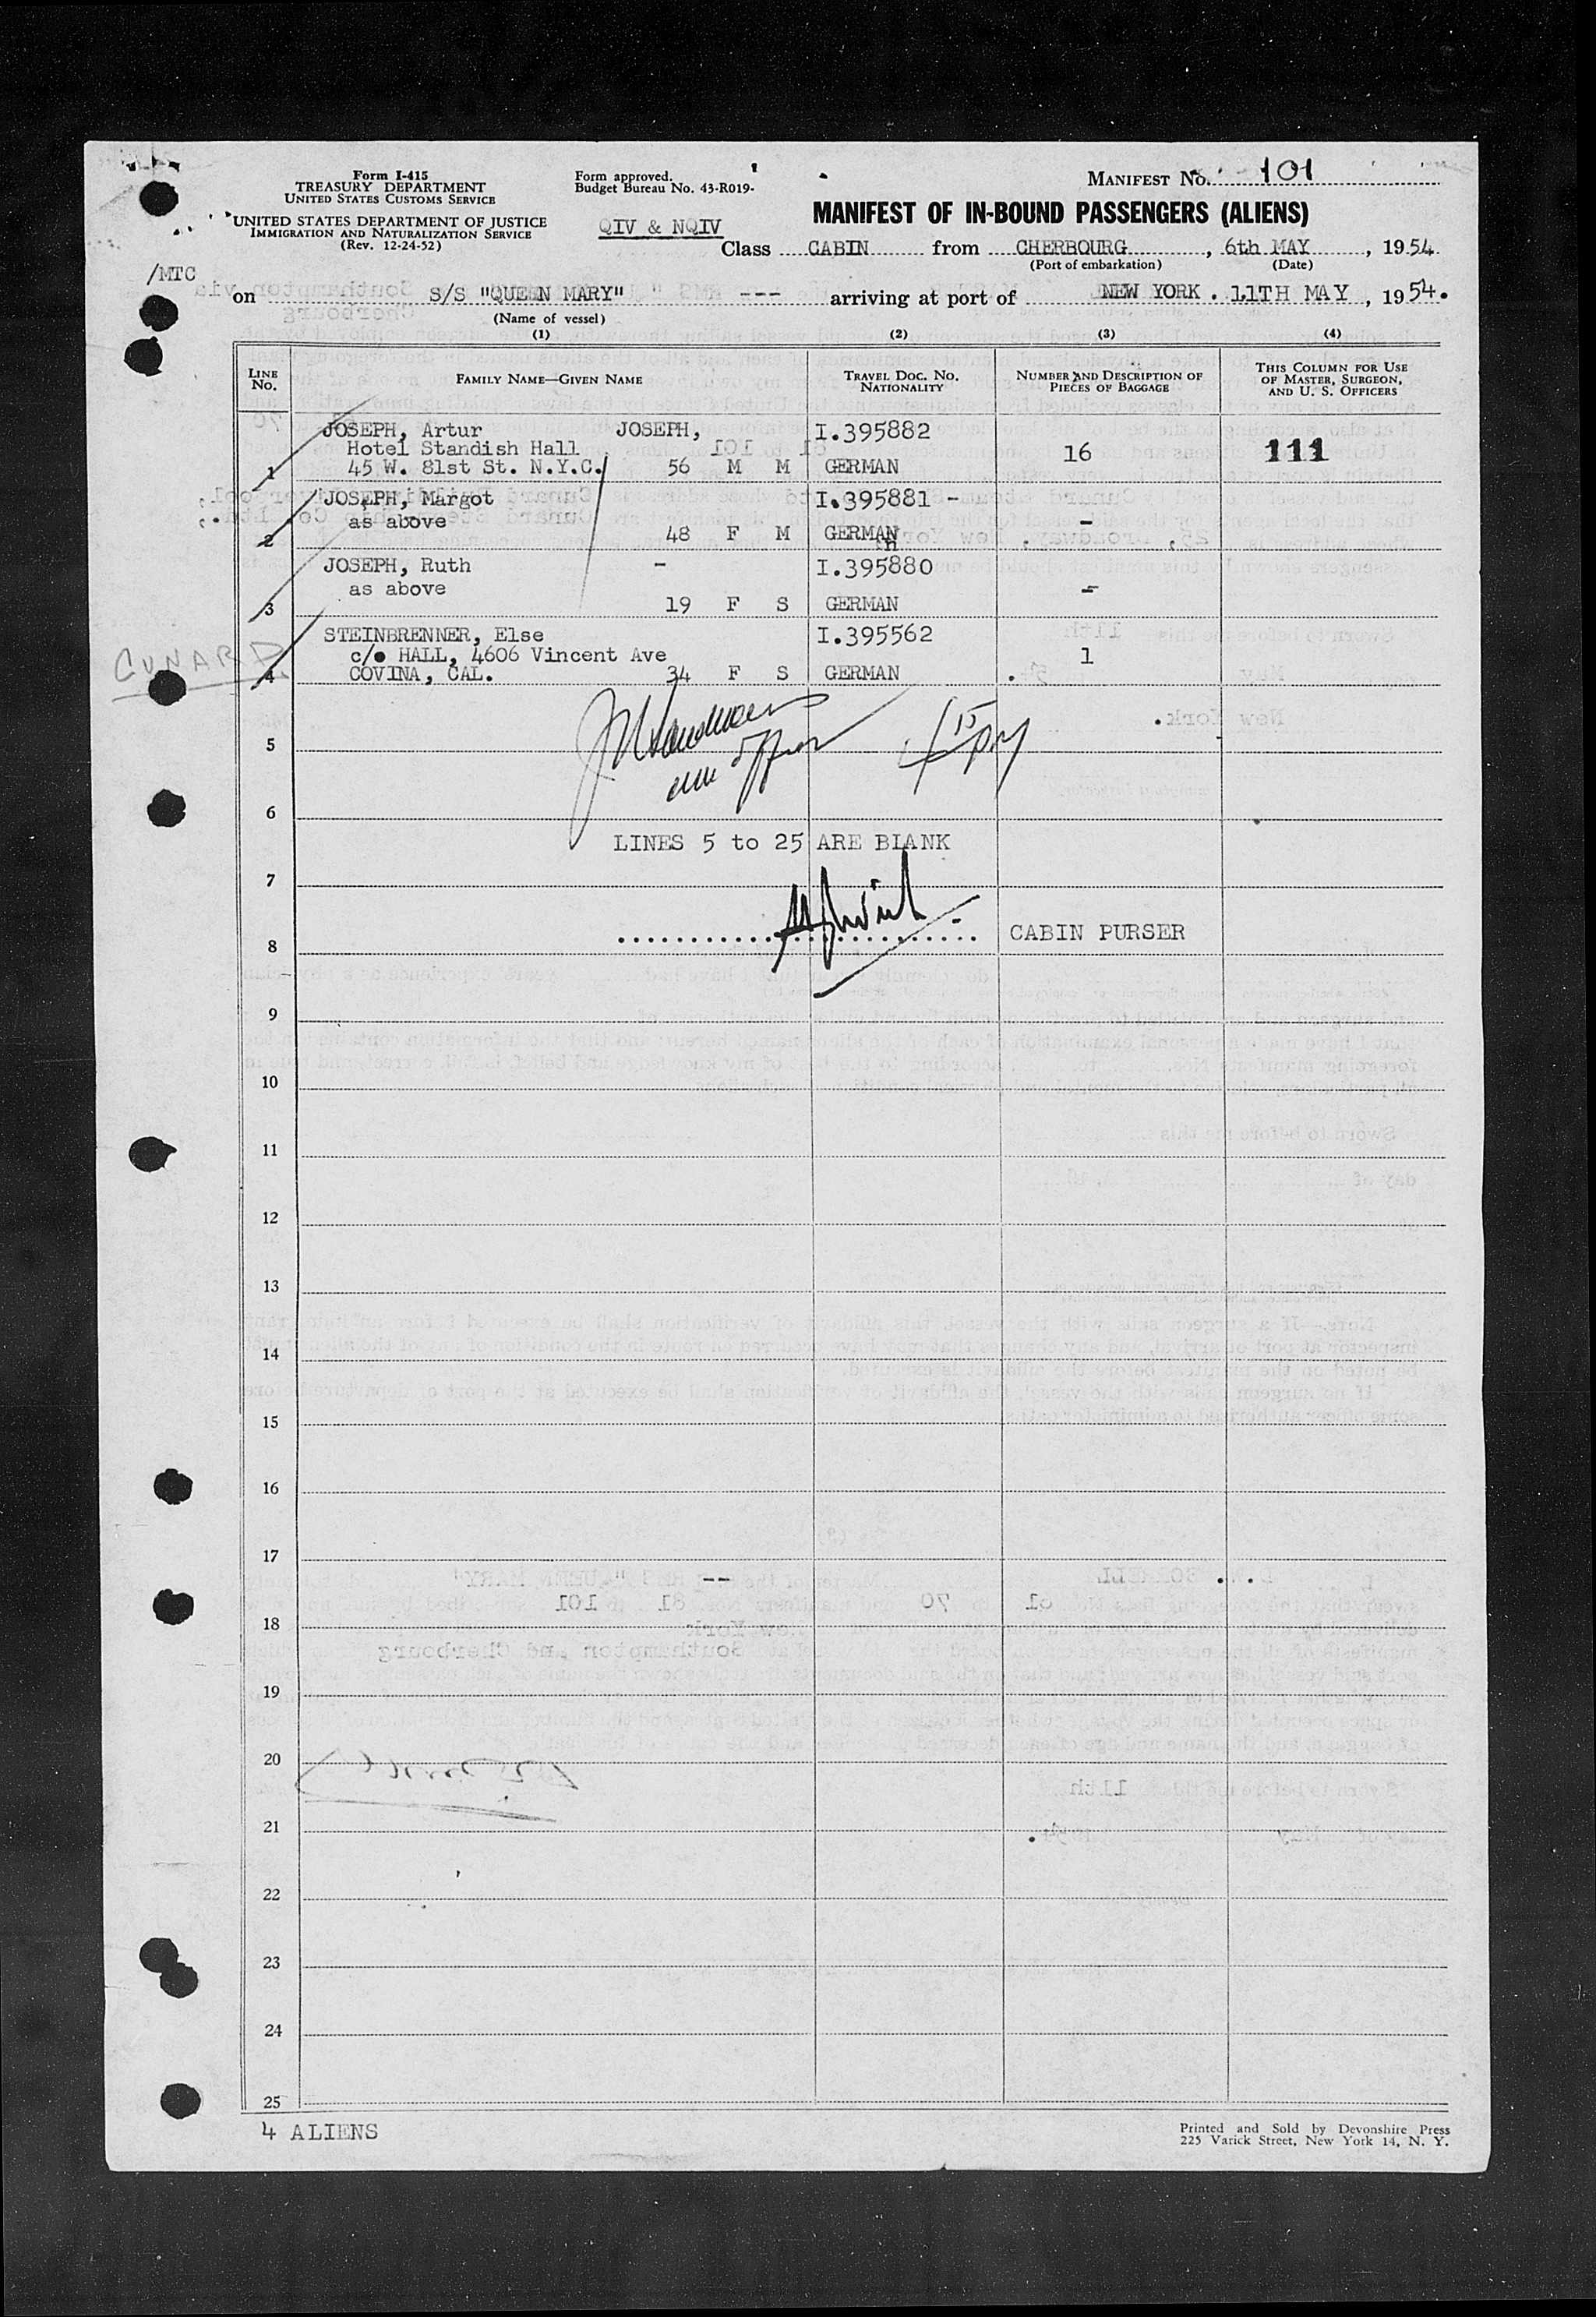 Form I-415
TREASURY DEPARTMENT
UNITED STATES CUSTOMS SERVICE
UNITED STATES DEPARTMENT OF JUSTICE
IMMIGRATION AND NATURALIZATION SERVICE
(Rev. 12-24-52)
Form approved.
Budget Bureau No. 43-R019-
MANIFEST No. 101
QIV & NQIV
MANIFEST OF IN-BOUND PASSENGERS (ALIENS)
Class CABIN from CHERBOURG, 6th MAY, 1954
(Port of embarkation) (Date)
/MTC
on S/S "QUEEN MARY" --- arriving at port of NEW YORK. 11TH MAY, 1954.
(Name of vessel)
(1) (2) (3) (4)
LINE No. FAMILY NAME—GIVEN NAME TRAVEL DOC. NO. NATIONALITY NUMBER AND DESCRIPTION OF PIECES OF BAGGAGE THIS COLUMN FOR USE OF MASTER, SURGEON, AND U. S. OFFICERS
JOSEPH, Artur JOSEPH, I.395882
Hotel Standish Hall 16 111
1 45 W. 81st St. N.Y.C. 56 M M GERMAN
JOSEPH, Margot I.395881 -
as above -
2 48 F M GERMAN
JOSEPH, Ruth - I.395880
as above -
3 19 F S GERMAN
STEINBRENNER, Else I.395562
CUNARD c/o HALL, 4606 Vincent Ave 1
4 COVINA, CAL. 34 F S GERMAN
5
6
LINES 5 to 25 ARE BLANK
7
8 CABIN PURSER
9
10
11
12
13
14
15
16
17
18
19
20
21
22
23
24
25
4 ALIENS
Printed and Sold by Devonshire Press
225 Varick Street, New York 14, N. Y.